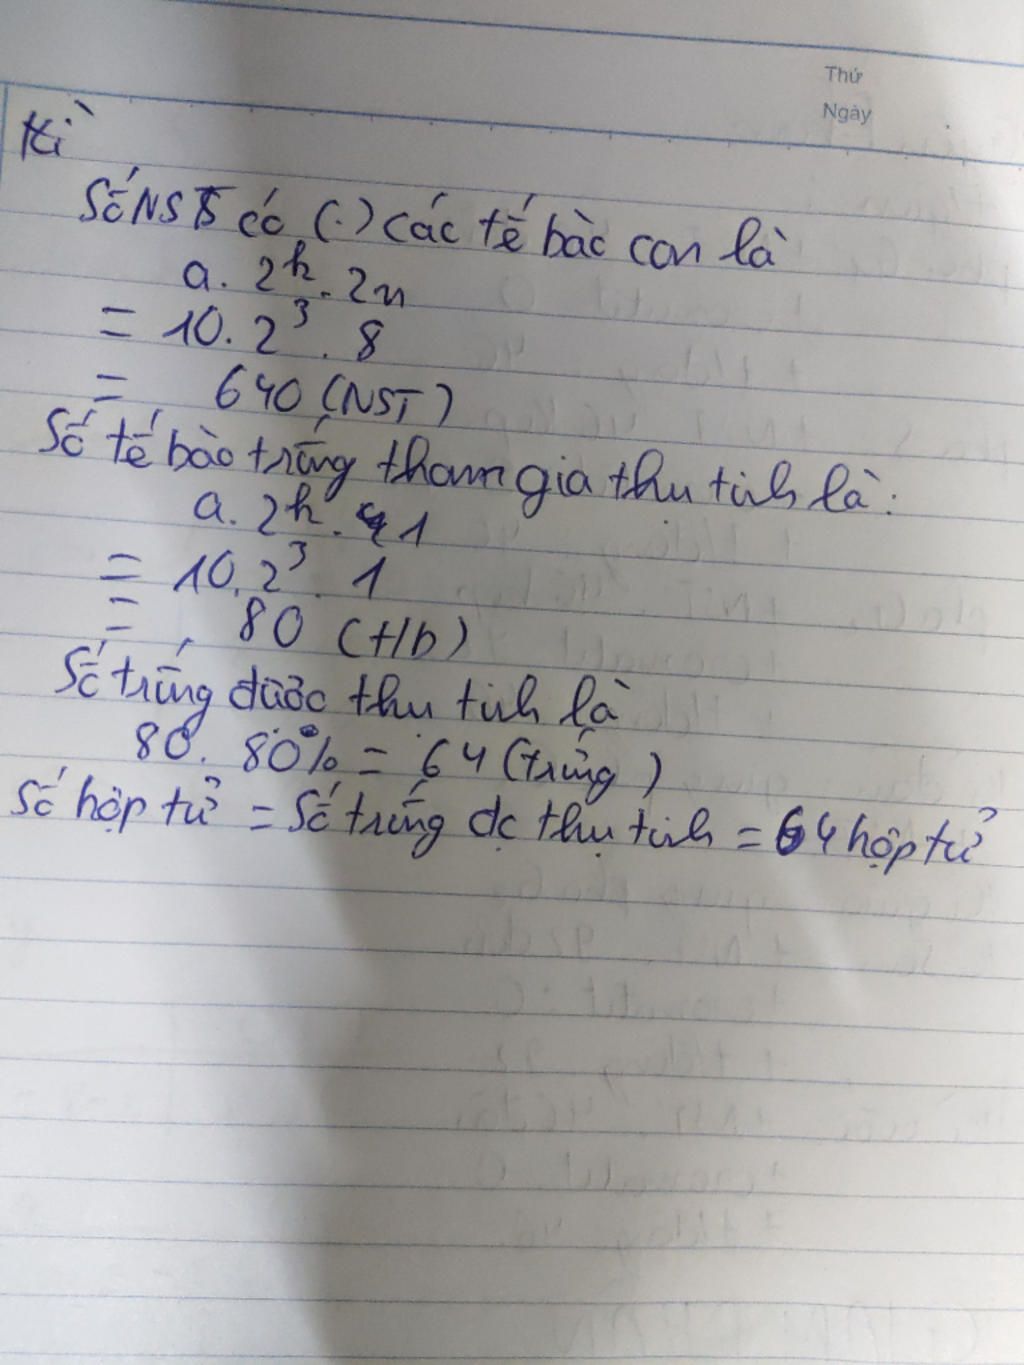 Thứ
Ngày
Hì
Số NST có (.) các tế bàc con là
a. 2k. 2n
= 10. 2³. 8
= 640 (NST)
Số tế bào trứng tham gia thu tinh là:
a. 2k. 1
= 10. 2³. 1
= 80 (t/b)
Số trứng được thu tinh là
80. 80% = 64 (trứng)
Số hợp tử = Số trứng đc thụ tinh = 64 hợp tử